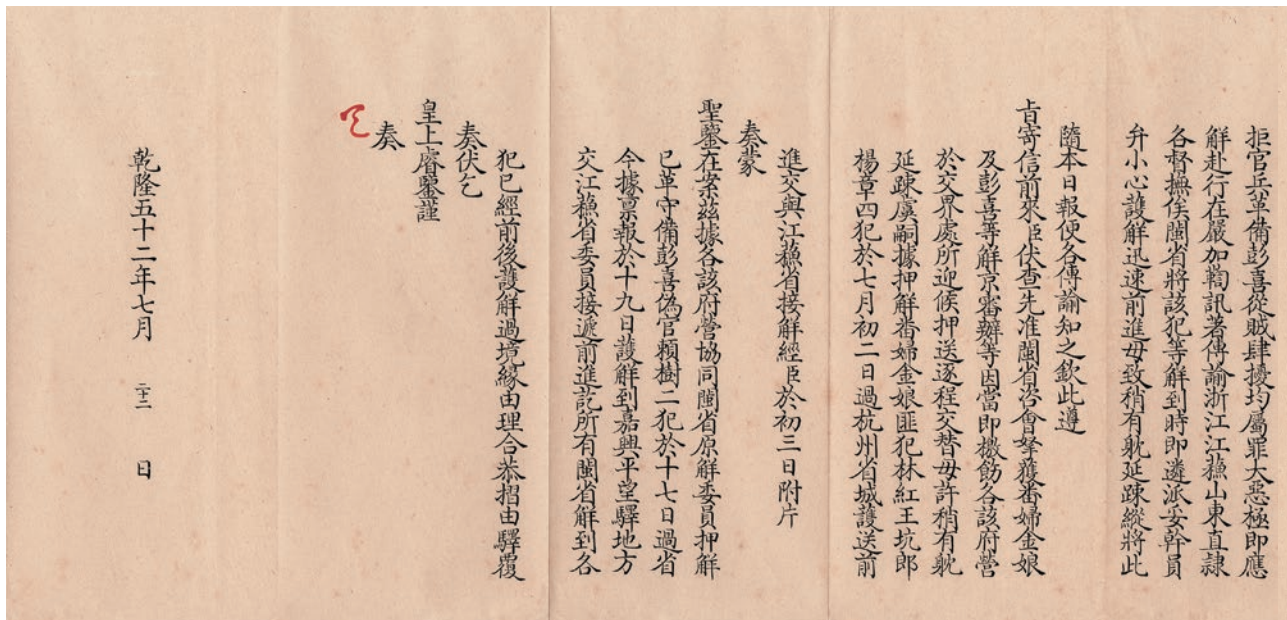 拒官兵革備彭喜從賊肆擾均屬罪大惡極即應
解赴行在嚴加鞫訊著傳諭浙江江蘓山東直隸
各督撫俟閩省將該犯等解到時即遴派妥幹員
弁小心護解迅速前進毋致稍有躭延踈縱將此
隨本日報便各傳諭知之欽此遵
旨寄信前來臣伏查先准閩省咨會拏獲番婦金娘
及彭喜等解京審辦等因當即檄飭各該府營
於交界處所迎候押送逐程交替毋許稍有躭
延踈虞嗣據押解番婦金娘匪犯林紅王坑郎
楊章四犯於七月初二日過杭州省城護送前
進交與江蘓省接解經臣於初三日附片
奏蒙
聖鑒在案茲據各該府營協同閩省原解委員押解
已革守備彭喜偽官賴樹二犯於十七日過省
今據稟報於十九日護解到嘉興平望驛地方
交江蘓省委員接遞前進訖所有閩省解到各
犯已經前後護解過境緣由理合恭摺由驛覆
奏伏乞
皇上睿鑒謹
奏
乾隆五十二年七月 二十二 日